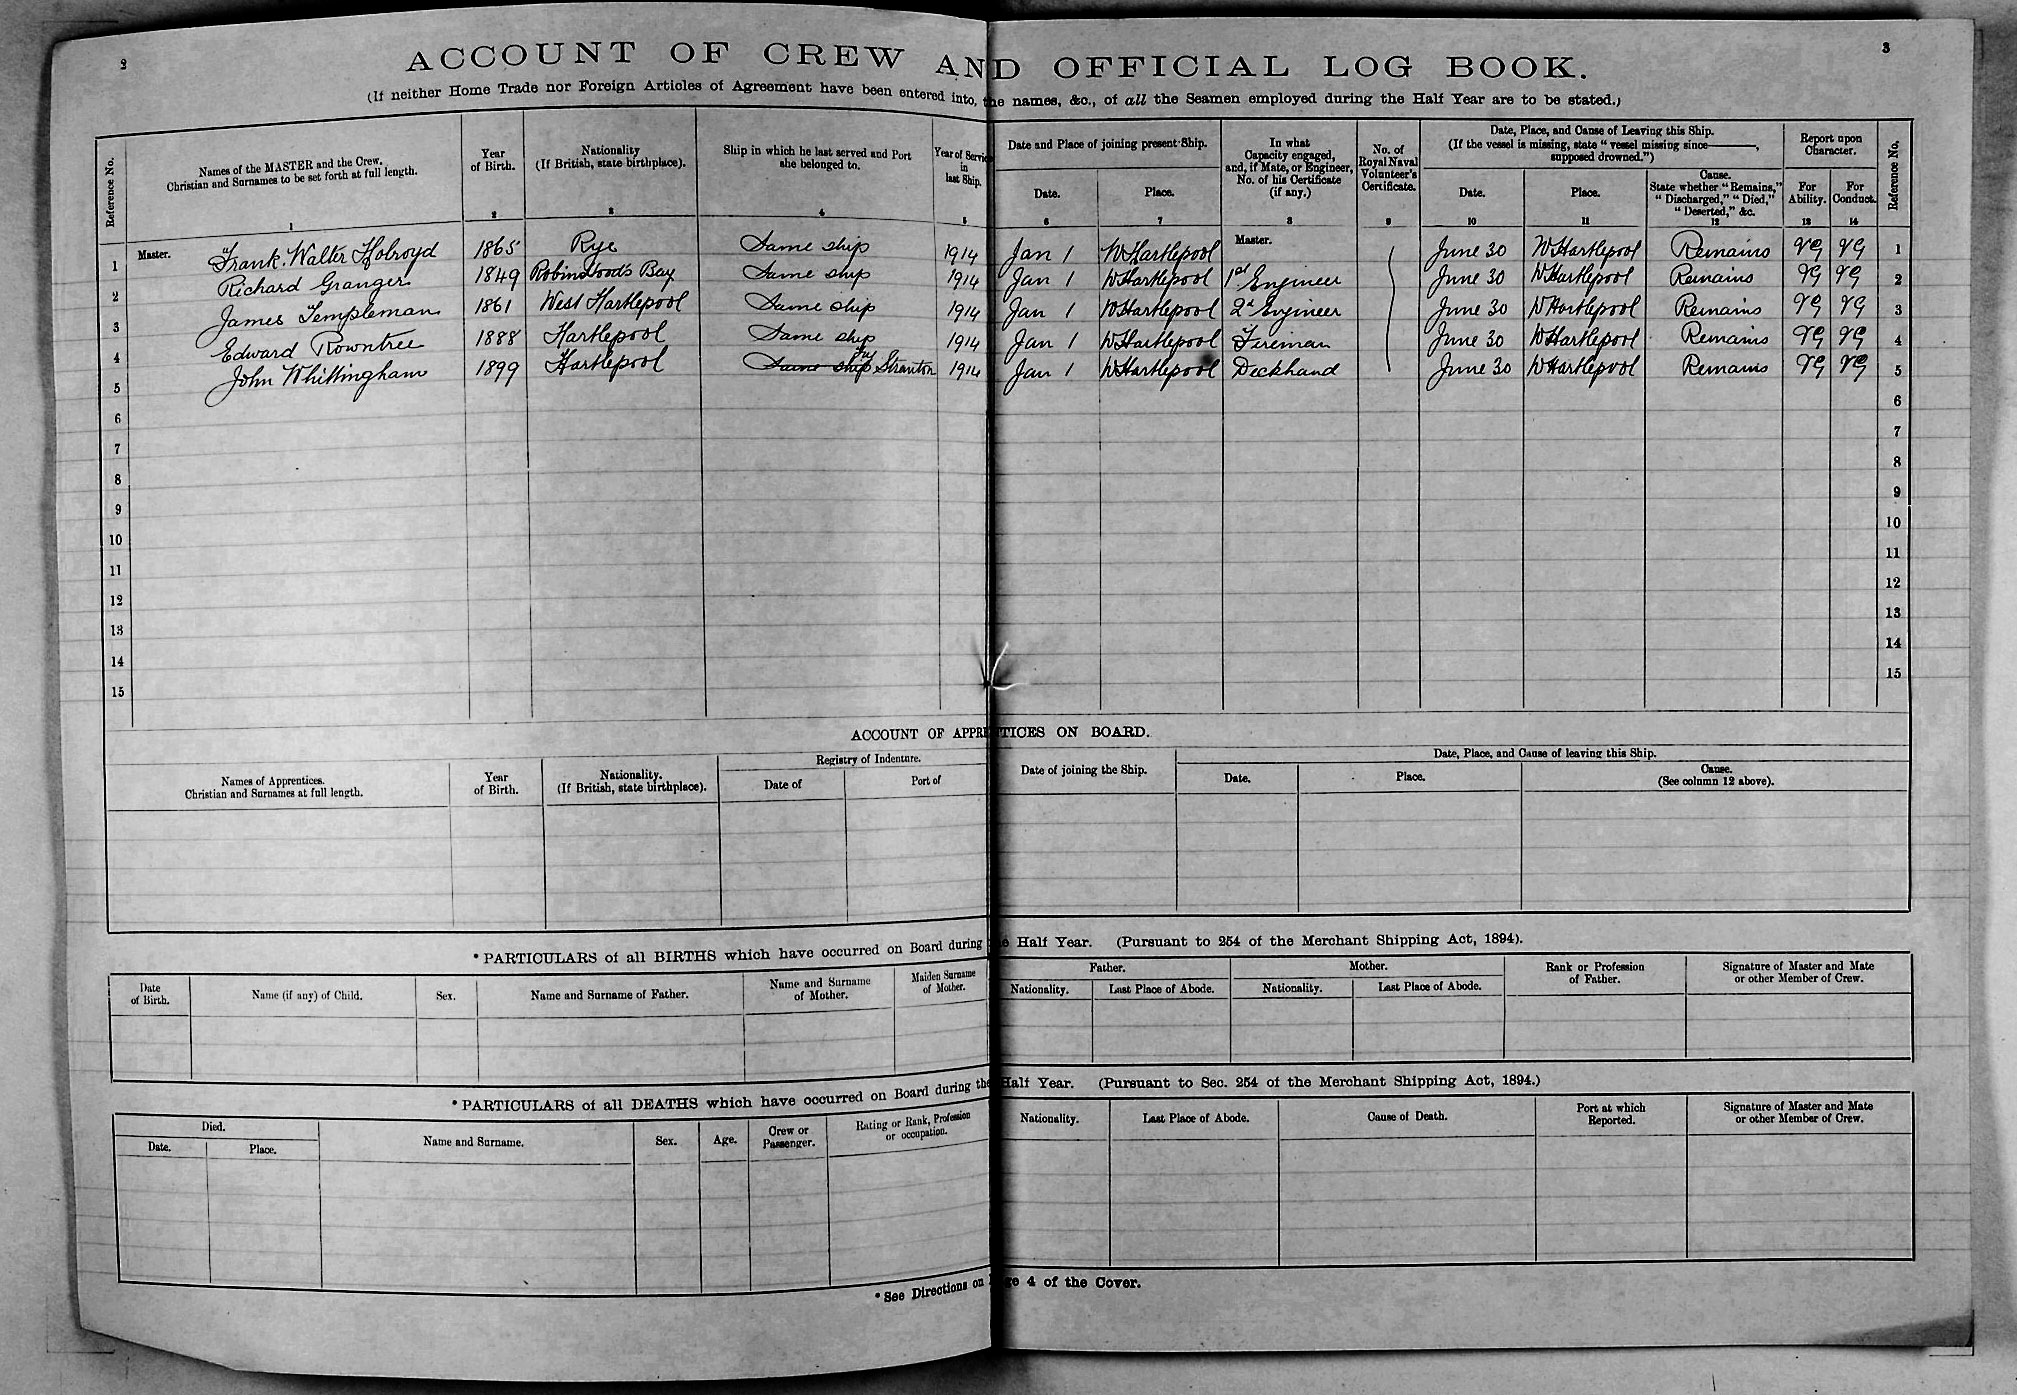 2
3
ACCOUNT OF CREW AND OFFICIAL LOG BOOK.
(If neither Home Trade nor Foreign Articles of Agreement have been entered into, the names, &c., of all the Seamen employed during the Half Year are to be stated.)
Reference No.
Names of the MASTER and the Crew.
Christian and Surnames to be set forth at full length.
1
Year
of Birth.
2
Nationality
(If British, state birthplace).
3
Ship in which he last served and Port
she belonged to.
4
Year of Service
in
last Ship.
5
Date and Place of joining present Ship.
Date.
6
Place.
7
In what
Capacity engaged,
and, if Mate, or Engineer,
No. of his Certificate
(if any.)
8
No. of
Royal Naval
Volunteer's
Certificate.
9
Date, Place, and Cause of Leaving this Ship.
(If the vessel is missing, state "vessel missing since———,
supposed drowned.")
Date.
10
Place.
11
Cause.
State whether "Remains,"
"Discharged," "Died,"
"Deserted," &c.
12
Report upon
Character.
For
Ability.
13
For
Conduct.
14
Reference No.
1 Master. Frank Walter Holroyd 1865 Rye Same ship 1914 Jan 1 W Hartlepool Master. June 30 W Hartlepool Remains VG VG 1
2 Richard Granger 1849 Robin Hoods Bay Same ship 1914 Jan 1 W Hartlepool 1st Engineer June 30 W Hartlepool Remains VG VG 2
3 James Templeman 1861 West Hartlepool Same ship 1914 Jan 1 W Hartlepool 2d Engineer June 30 W Hartlepool Remains VG VG 3
4 Edward Rowntree 1888 Hartlepool Same ship 1914 Jan 1 W Hartlepool Fireman June 30 W Hartlepool Remains VG VG 4
5 John Whittingham 1899 Hartlepool Same ship Stranton 1914 Jan 1 W Hartlepool Deckhand June 30 W Hartlepool Remains VG VG 5
6 6
7 7
8 8
9 9
10 10
11 11
12 12
13 13
14 14
15 15
ACCOUNT OF APPRENTICES ON BOARD.
Names of Apprentices.
Christian and Surnames at full length.
Year
of Birth.
Nationality.
(If British, state birthplace).
Registry of Indenture.
Date of
Port of
Date of joining the Ship.
Date, Place, and Cause of leaving this Ship.
Date.
Place.
Cause.
(See column 12 above).
*PARTICULARS of all BIRTHS which have occurred on Board during the Half Year. (Pursuant to 254 of the Merchant Shipping Act, 1894).
Date
of Birth.
Name (if any) of Child.
Sex.
Name and Surname of Father.
Name and Surname
of Mother.
Maiden Surname
of Mother.
Father.
Nationality.
Last Place of Abode.
Mother.
Nationality.
Last Place of Abode.
Rank or Profession
of Father.
Signature of Master and Mate
or other Member of Crew.
*PARTICULARS of all DEATHS which have occurred on Board during the Half Year. (Pursuant to Sec. 254 of the Merchant Shipping Act, 1894.)
Died.
Date.
Place.
Name and Surname.
Sex.
Age.
Crew or
Passenger.
Rating or Rank, Profession
or occupation.
Nationality.
Last Place of Abode.
Cause of Death.
Port at which
Reported.
Signature of Master and Mate
or other Member of Crew.
*See Directions on Page 4 of the Cover.